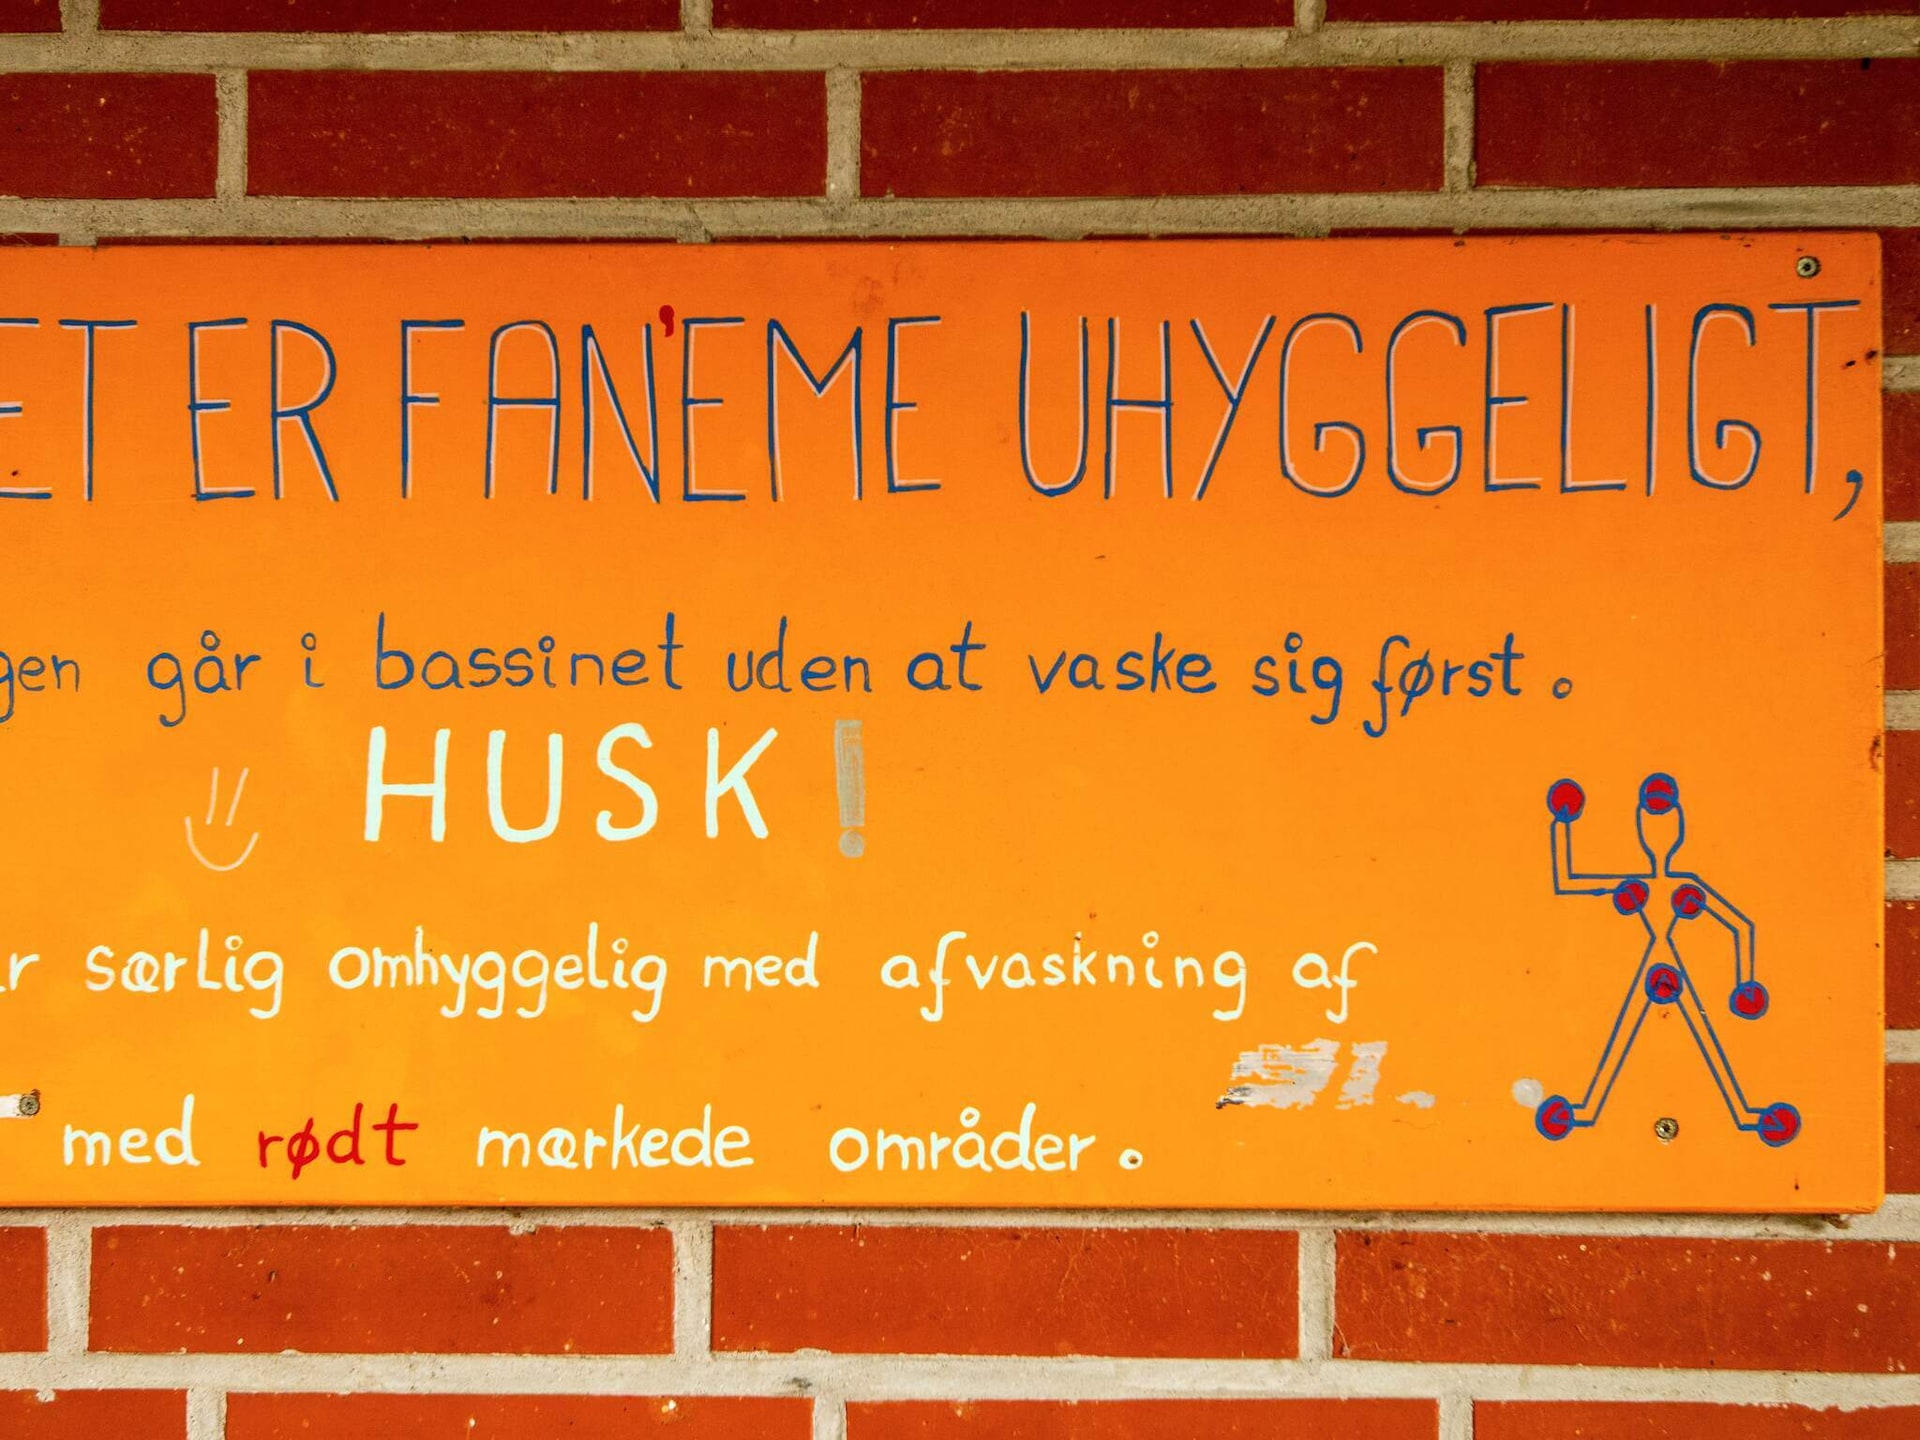 ET ER FAN'EME UHYGGELIGT,
gen går i bassinet uden at vaske sig først.
HUSK!
særlig omhyggelig med afvaskning af
med rødt mærkede områder.